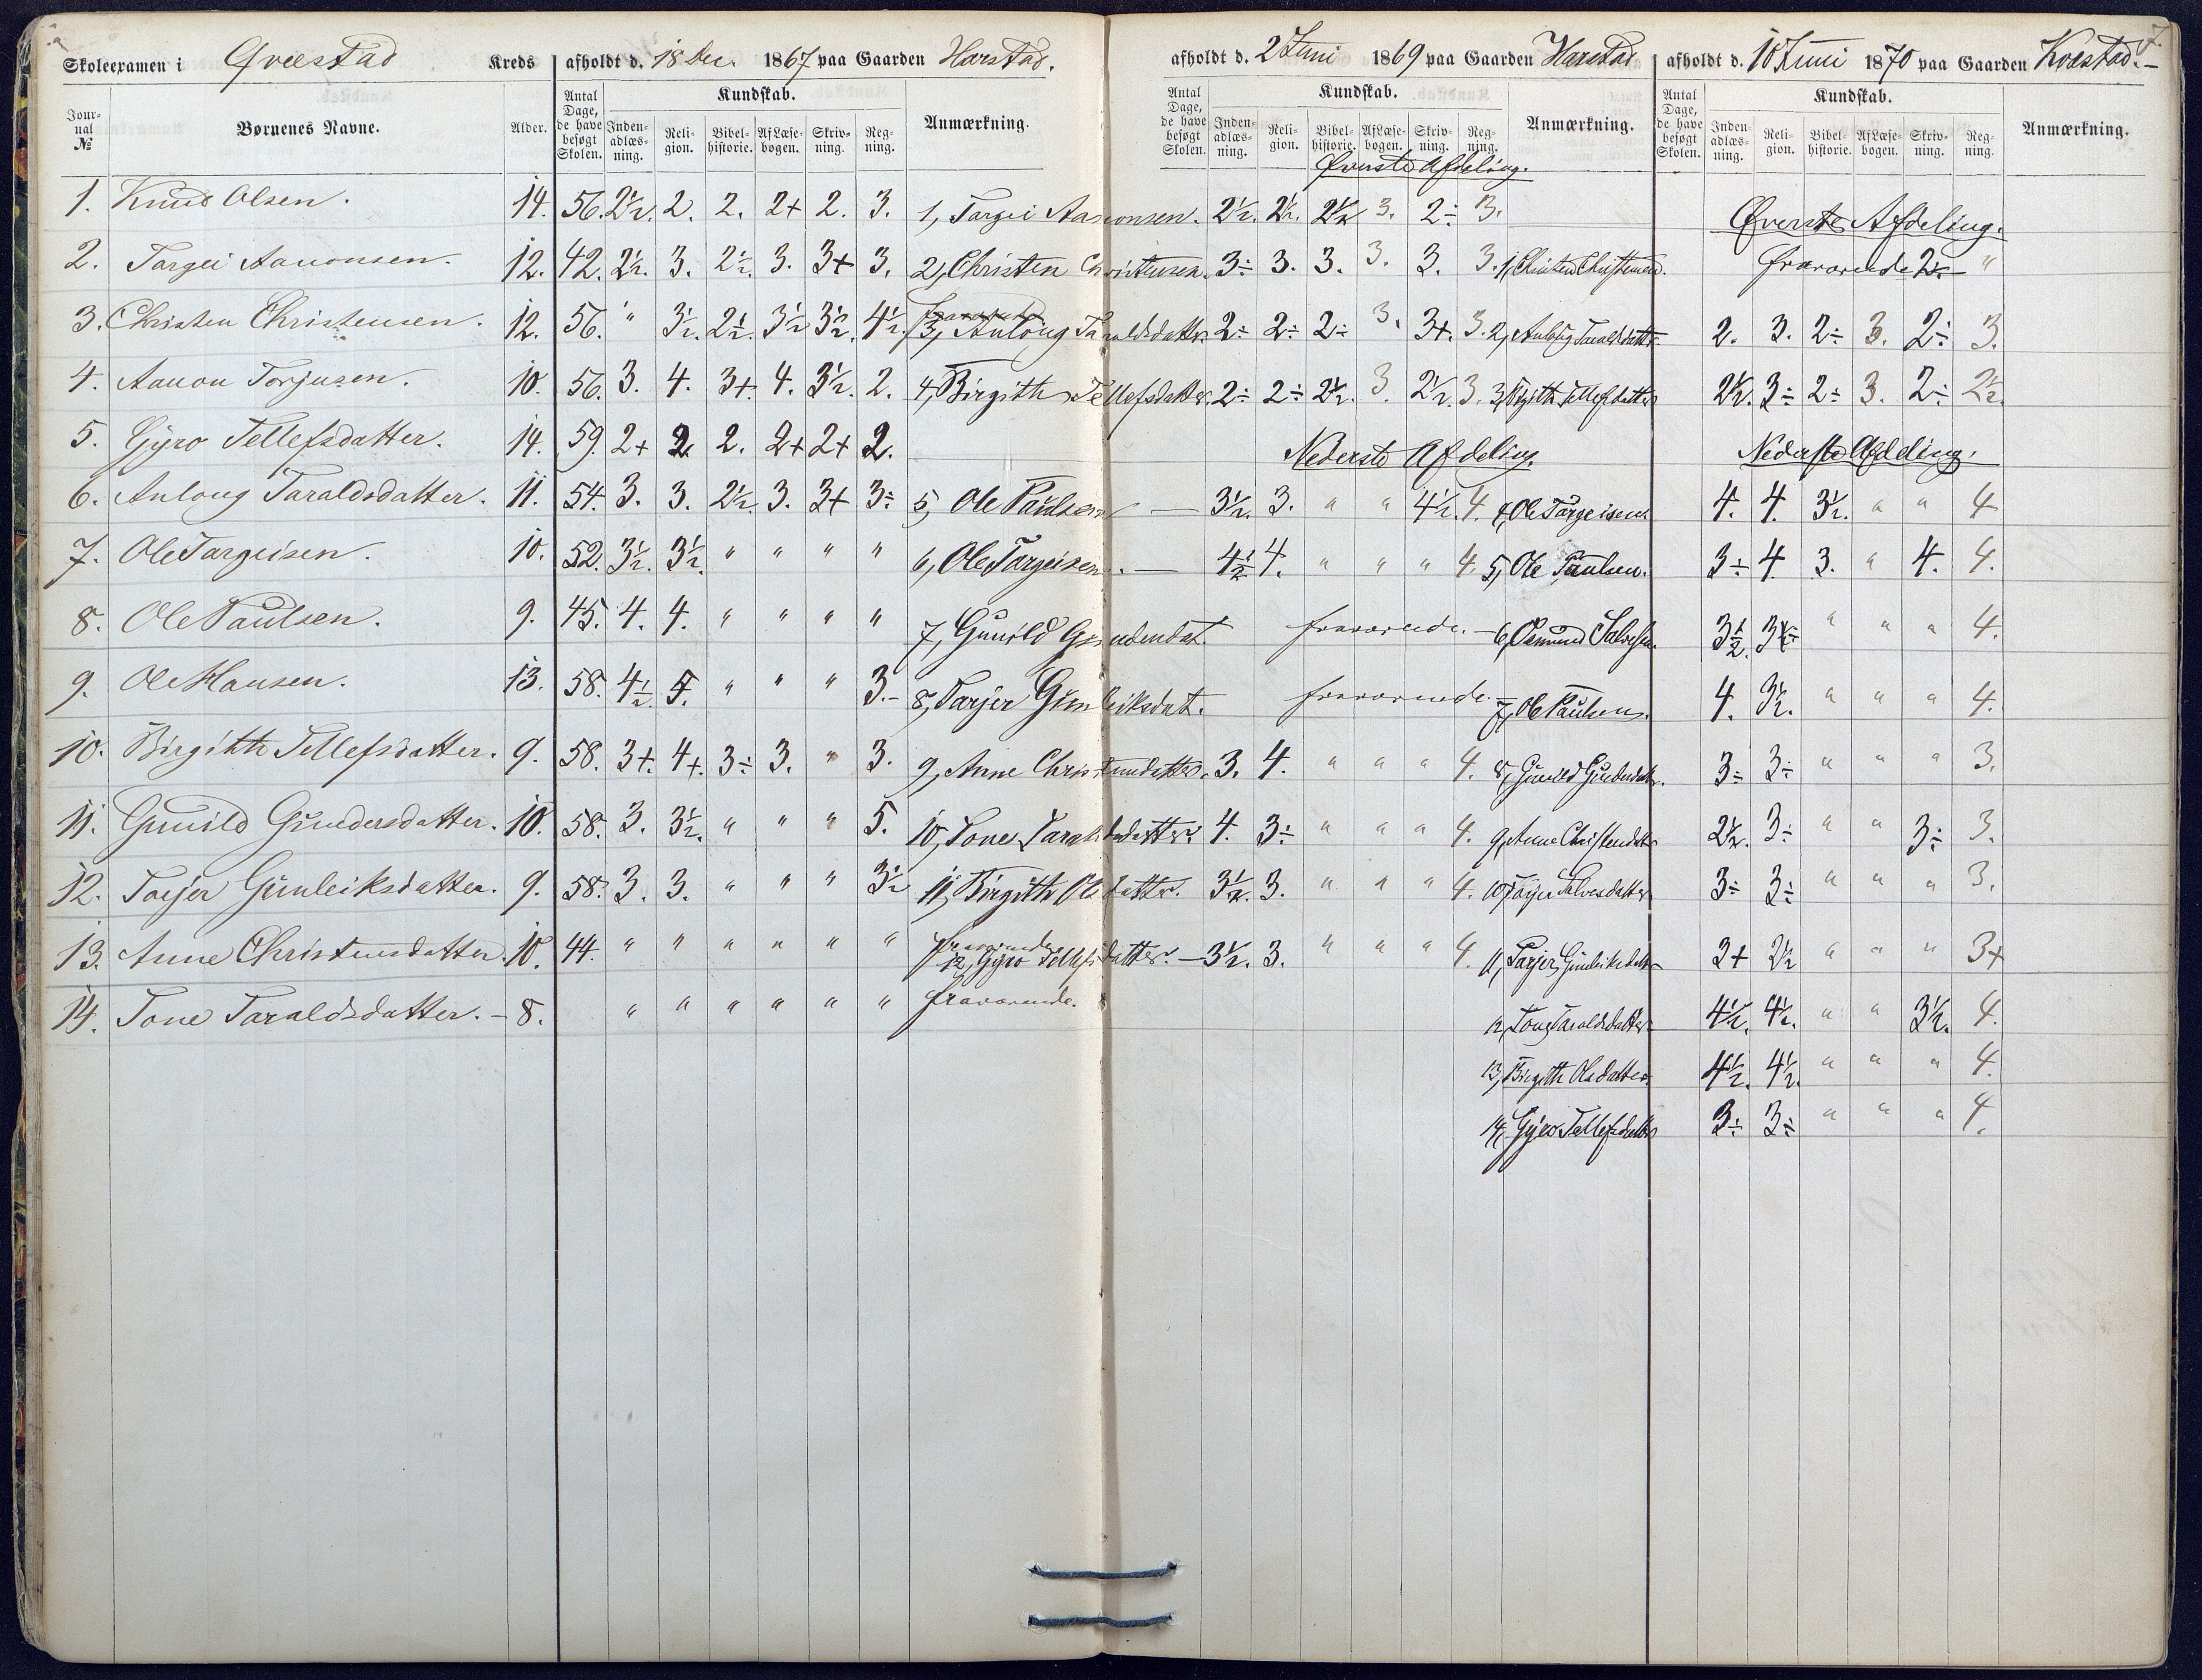 Skoleexamen i Qvæstad Kreds afholdt d. 18 Dec. 1867 paa Gaarden Harstad.
Journal № Børnenes Navne. Alder. Antal Dage, de have besøgt Skolen. Kundskab. Indenadlæsning. Religion. Bibelhistorie. Af Læsebogen. Skrivning. Regning. Anmærkning.
1. Knud Olsen. 14. 56. 2½. 2. 2. 2+ 2. 3.
2. Targei Aanonsen. 12. 42. 2½. 3. 2½. 3. 3+ 3.
3. Christen Christensen. 12. 56. " 3½. 2½. 3½ 3½. 4½. fraværende
4. Aanon Torjusen. 10. 56. 3. 4. 3+. 4. 3½. 2.
5. Gyro Tellefsdatter. 14. 59. 2+ 2 2. 2+ 2+ 2.
6. Anlaug Taraldsdatter. 11. 54. 3. 3. 2½. 3. 3+ 3÷
7. Ole Targeisen. 10. 52. 3½. 3½. " " " "
8. Ole Paulsen. 9. 45. 4. 4. " " " "
9. Ole Hansen. 13. 58. 4½. 5. " " " 3.-
10. Birgithe Tellefsdatter. 9. 58. 3+. 4+. 3÷ 3. " 3.
11. Gunild Gundersdatter. 10. 58. 3. 3½. " " " 5.
12. Tarjer Gunleiksdatter. 9. 58. 3. 3. " " " 3½
13. Anne Christensdatter. 10. 44. " " " " " " fraværende
14. Tone Taraldsdatter. - 8. " " " " " " fraværende.
afholdt d. 2 Juni 1869 paa Gaarden Harstad
Antal Dage, de have besøgt Skolen. Kundskab. Indenadlæsning. Religion. Bibelhistorie. Af Læsebogen. Skrivning. Regning. Anmærkning.
Øverste Afdeling.
1, Targei Aanonsen. 2½. 2½. 2½ 3. 2÷ 3.
2, Christen Christensen. 3÷ 3. 3. 3. 3. 3.
3, Anlaug Taraldsdatter. 2÷ 2÷ 2÷ 3. 3+. 3.
4, Birgithe Tellefsdatter. 2÷ 2÷ 2½. 3. 2½. 3.
Nederste Afdeling.
5, Ole Paulsen - 3½. 3. " " 4½. 4.
6, Ole Targeisen. - 4½ 4. " " " 4.
7, Gunild Gundersdat. fraværende. -
8, Tarjer Gunleiksdat. fraværende. -
9, Anne Christensdatter. 3. 4. " " " 4.
10, Tone Taraldsdatter 4. 3÷ " " " 4.
11, Birgithe Olsdatter. 3½. 3. " " " 4.
12, Gyro Tellefsdatter. - 3½. 3. " " " 4.
7.
afholdt d. 10 Juni 1870 paa Gaarden Kvæstad. -
Antal Dage, de have besøgt Skolen. Kundskab. Indenadlæsning. Religion. Bibelhistorie. Af Læsebogen. Skrivning. Regning. Anmærkning.
Øverste Afdeling.
1, Christen Christensen. fraværende 2½ - "
2, Anlaug Taraldsdatter 2. 3. 2÷ 3. 2÷ 3.
3, Birgithe Tellefsdatter 2½. 3÷ 2÷ 3. 2÷ 2½.
Nederste Afdeling.
4, Ole Targeisen. 4. 4. 3½. " " 4
5, Ole Paulsen. 3÷ 4. 3. " 4. 4.
6, Osmund Salvesen. 3½. 3½ " " " 4.
7, Ole Paulsen. 4. 3½. " " " 4.
8, Gunild Gundersdatter. 3÷ 3÷ " " " 3.
9, Anne Christensdatter 2½. 3÷ " " 3÷ 3.
10, Tarjer Salvesdatter 3÷ 3÷ " " " 3.
11, Tarjer Gunleiksdatter 3+ 2½ " " " 3+
12, Tone Taraldsdatter 4½. 4½. " " 3½. 4.
13, Birgithe Olsdatter. 4½. 4½. " " " 4.
14, Gyro Tellefsdatter 3÷ 3÷ " " " 4.